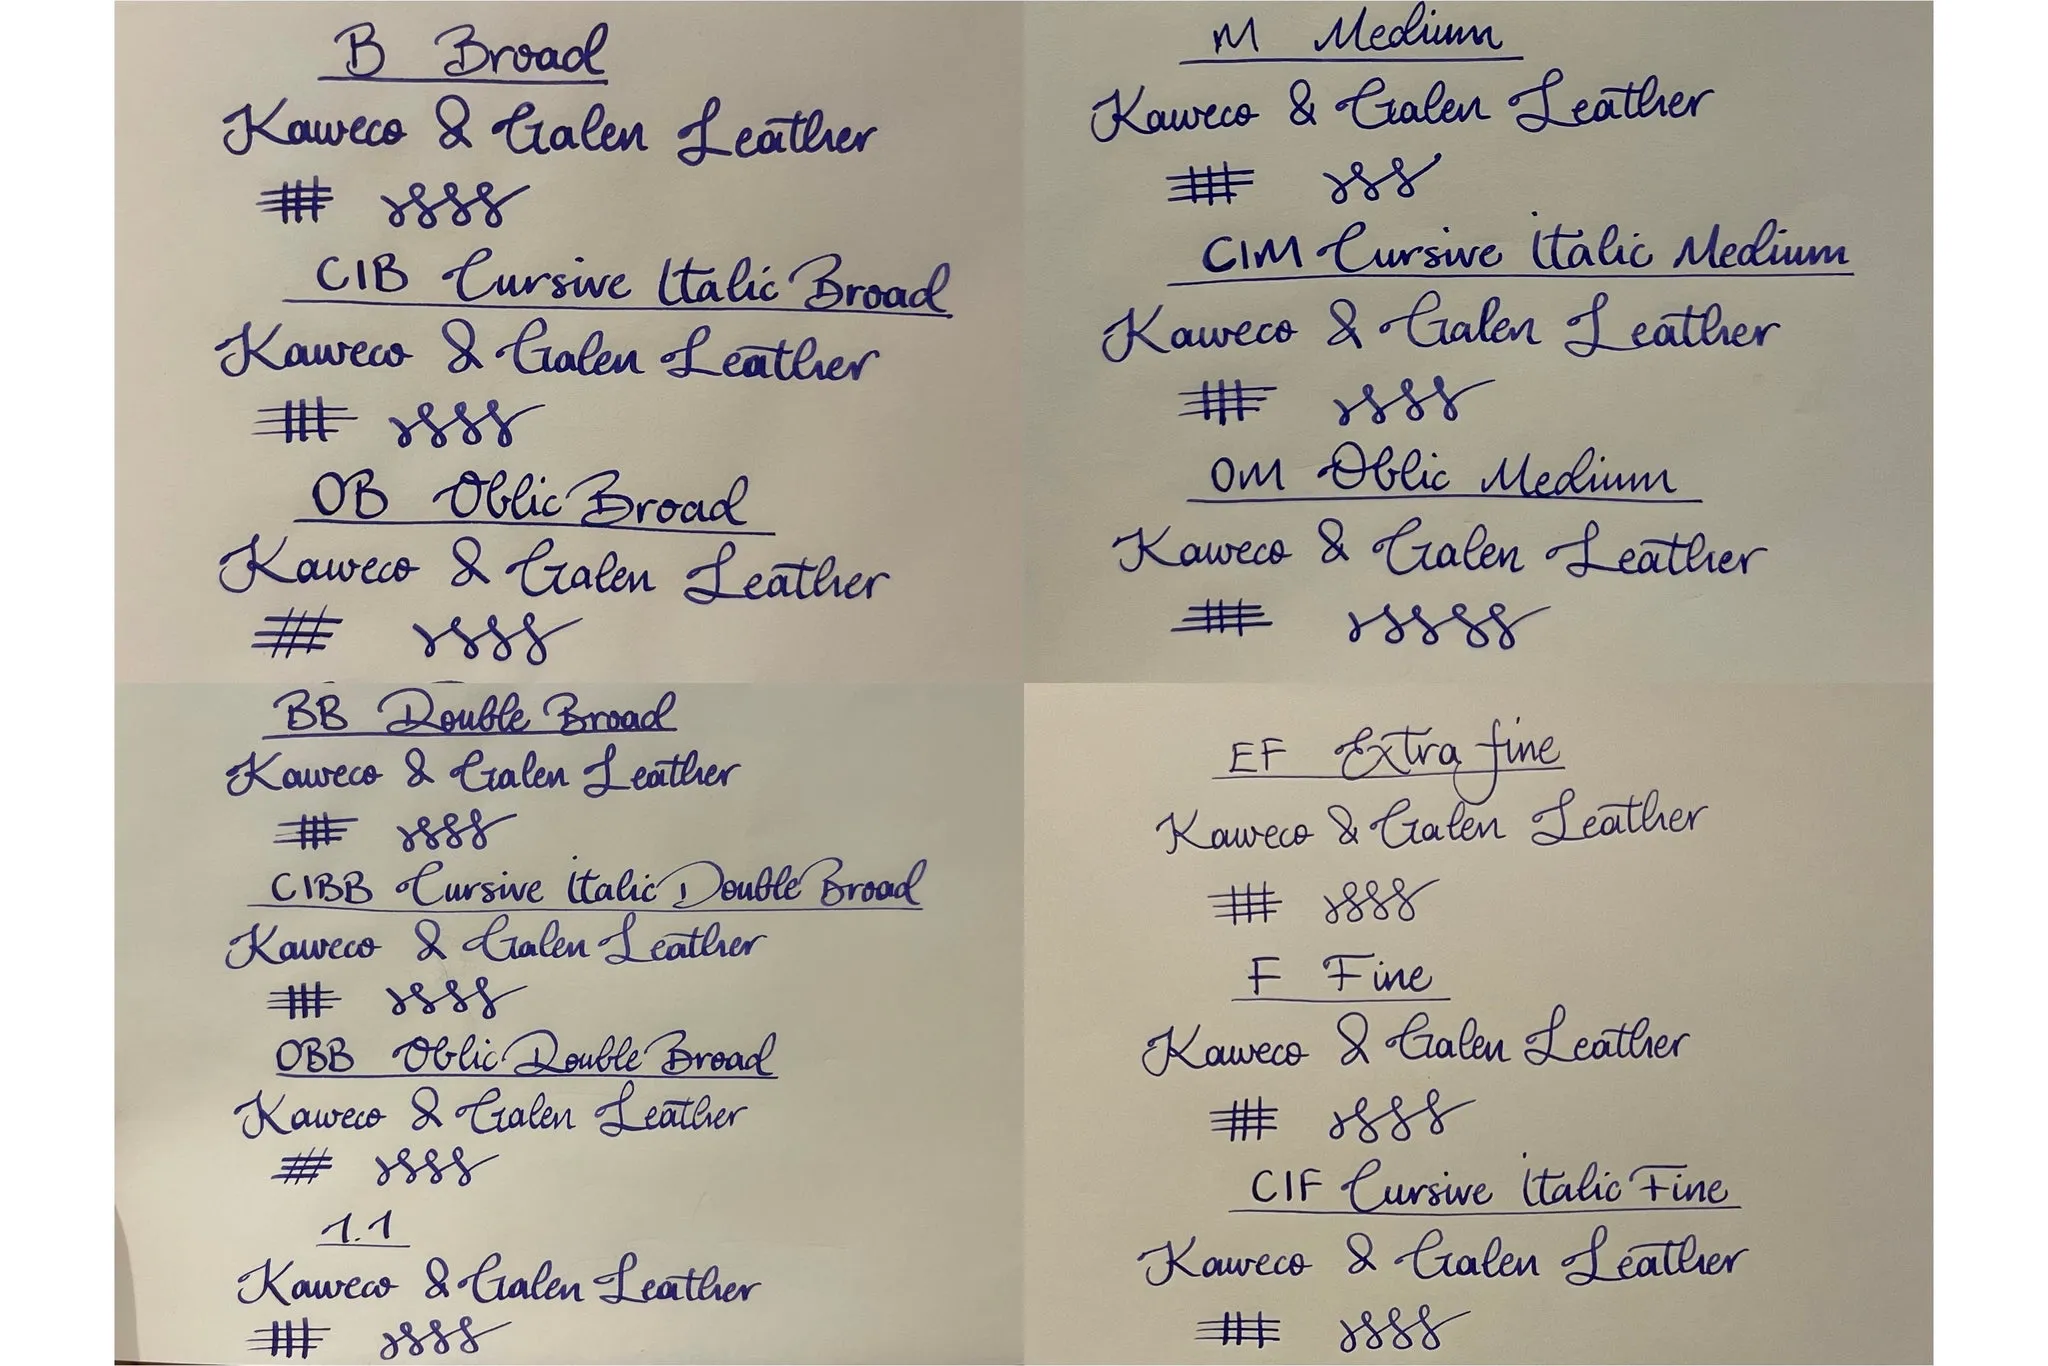 B Broad
Kaweco & Galen Leather
CIB Cursive Italic Broad
Kaweco & Galen Leather
OB Oblic Broad
Kaweco & Galen Leather
M Medium
Kaweco & Galen Leather
CIM Cursive Italic Medium
Kaweco & Galen Leather
OM Oblic Medium
Kaweco & Galen Leather
BB Double Broad
Kaweco & Galen Leather
CIBB Cursive Italic Double Broad
Kaweco & Galen Leather
OBB Oblic Double Broad
Kaweco & Galen Leather
1.1
Kaweco & Galen Leather
EF Extra fine
Kaweco & Galen Leather
F Fine
Kaweco & Galen Leather
CIF Cursive Italic Fine
Kaweco & Galen Leather